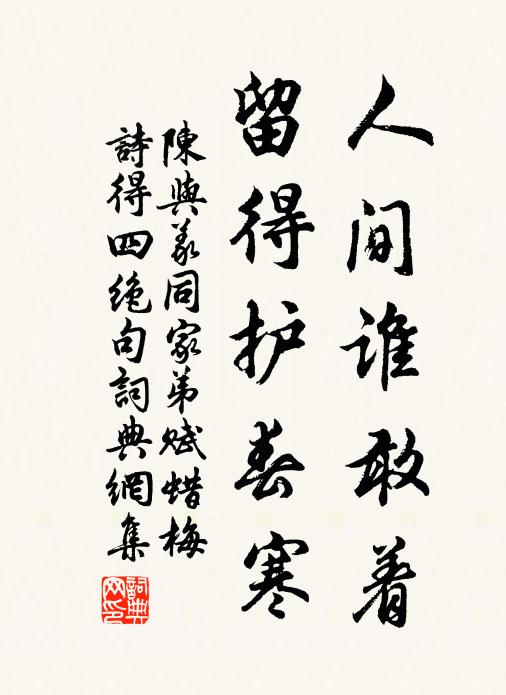 人间谁敢着
留得护春寒
陳與義同家弟赋蜡梅
詩得四绝句詞典網集
詞典网印